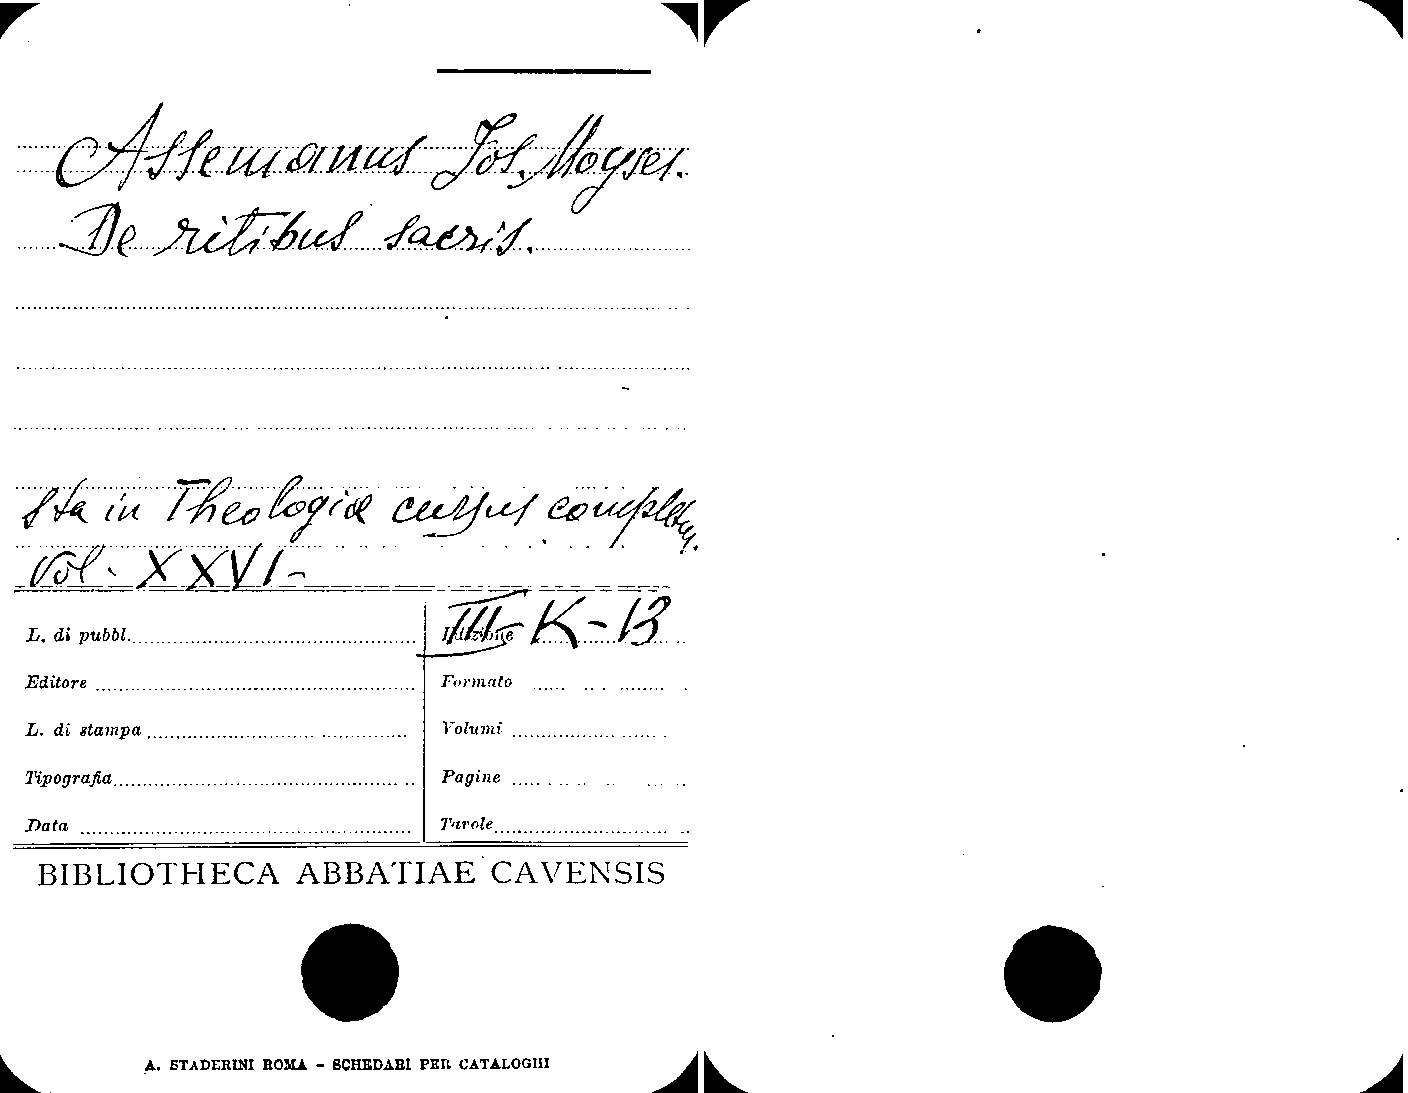 Assemanus Jos. Moyses.
De ritibus sacris.
Sta in Theologiæ cursus completus.
Vol. XXVI-
III-K-13
L. di pubbl.
Editore
Formato
L. di stampa
Volumi
Tipografia
Pagine
Data
Tavole
BIBLIOTHECA ABBATIAE CAVENSIS
A. STADERINI ROMA - SCHEDARI PER CATALOGHI